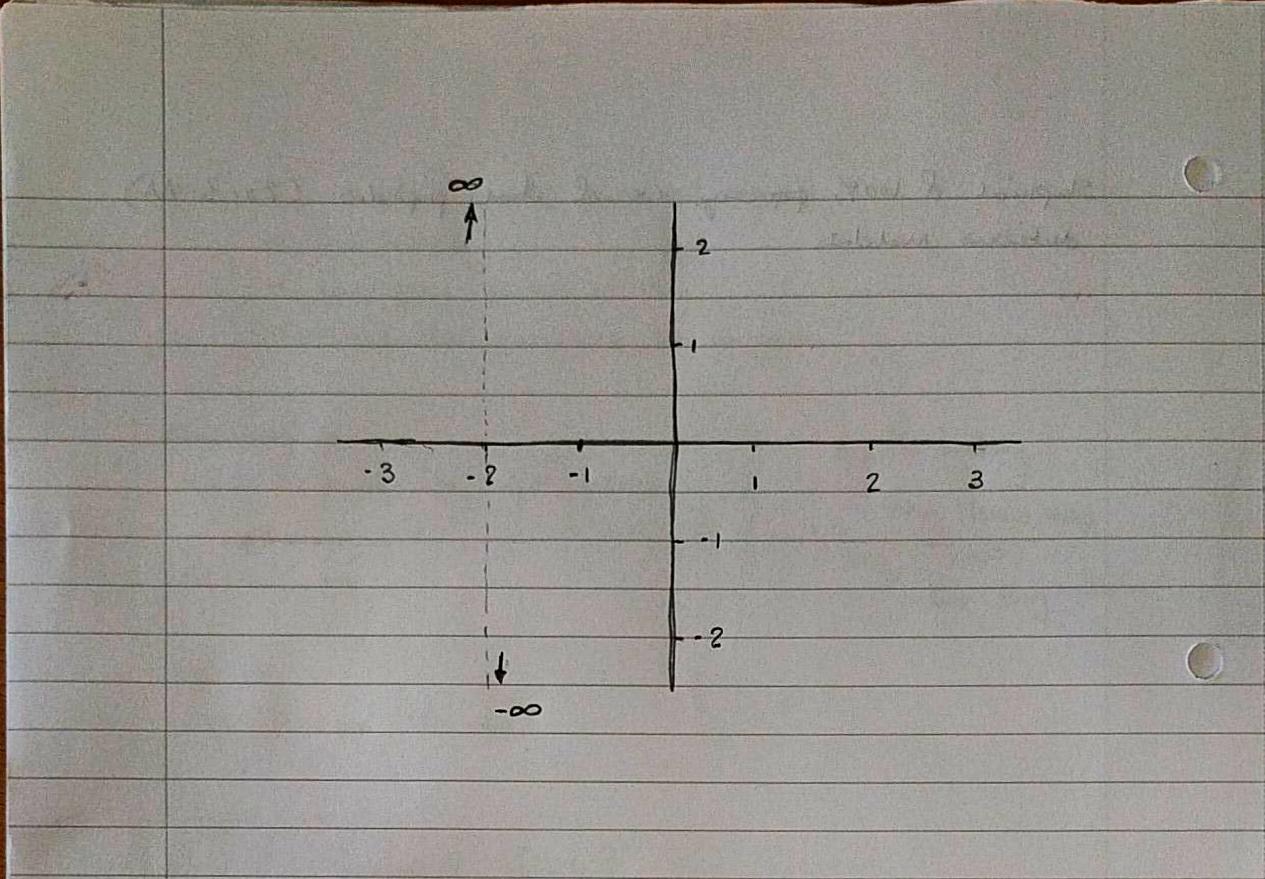 ∞
2
1
-3 -2 -1 1 2 3
-1
-2
-∞